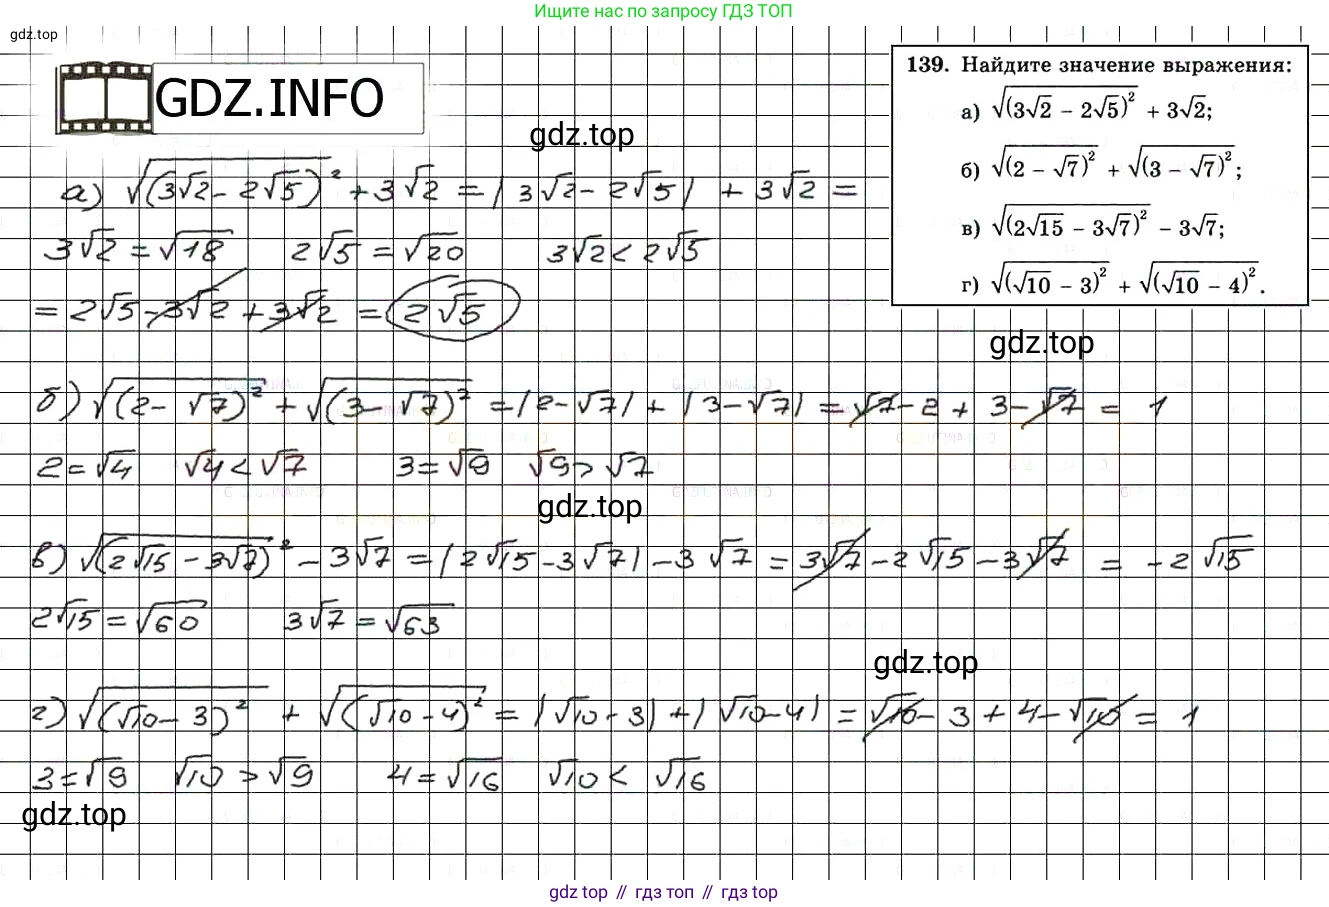 Ищите нас по запросу ГДЗ ТОП
gdz.top
GDZ.INFO
139. Найдите значение выражения:
а) √(3√2 − 2√5)² + 3√2;
б) √(2 − √7)² + √(3 − √7)²;
в) √(2√15 − 3√7)² − 3√7;
г) √(√10 − 3)² + √(√10 − 4)².
gdz.top
gdz.top
а) √(3√2 − 2√5)² + 3√2 = |3√2 − 2√5| + 3√2 =
3√2 = √18 2√5 = √20 3√2 < 2√5
= 2√5 − 3√2 + 3√2 = 2√5
б) √(2 − √7)² + √(3 − √7)² = |2 − √7| + |3 − √7| = √7 − 2 + 3 − √7 = 1
2 = √4 √4 < √7 3 = √9 √9 > √7
gdz.top
в) √(2√15 − 3√7)² − 3√7 = |2√15 − 3√7| − 3√7 = 3√7 − 2√15 − 3√7 = −2√15
2√15 = √60 3√7 = √63
gdz.top
г) √(√10 − 3)² + √(√10 − 4)² = |√10 − 3| + |√10 − 4| = √10 − 3 + 4 − √10 = 1
3 = √9 √10 > √9 4 = √16 √10 < √16
gdz.top
gdz top // гдз топ // гдз top